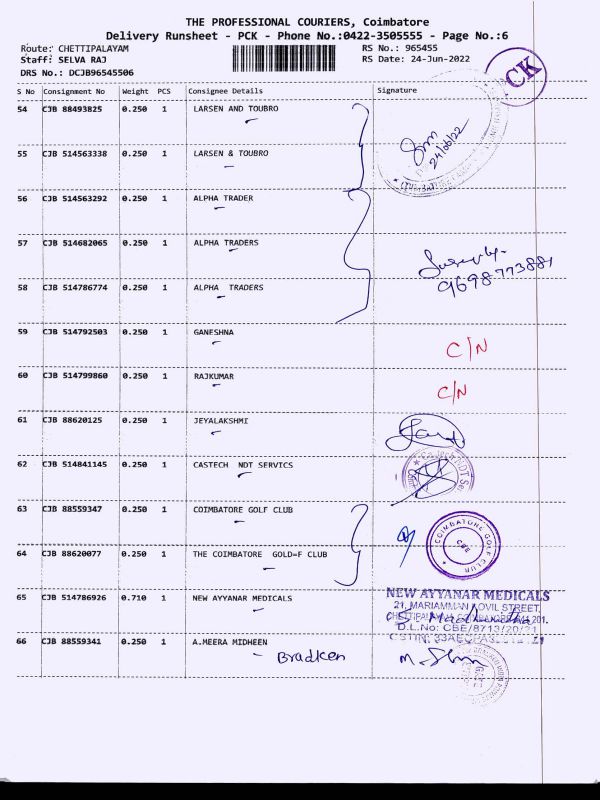 THE PROFESSIONAL COURIERS, Coimbatore
Delivery Runsheet - PCK - Phone No.:0422-3505555 - Page No.:6
Route: CHETTIPALAYAM RS No.: 965455
Staff: SELVA RAJ RS Date: 24-Jun-2022
DRS No.: DCJB96545506
CK
S No Consignment No Weight PCS Consignee Details Signature
54 CJB 88493825 0.250 1 LARSEN AND TOUBRO
24/06/22
55 CJB 514563338 0.250 1 LARSEN & TOUBRO
56 CJB 514563292 0.250 1 ALPHA TRADER
57 CJB 514682065 0.250 1 ALPHA TRADERS
58 CJB 514786774 0.250 1 ALPHA TRADERS
59 CJB 514792503 0.250 1 GANESHNA C/N
60 CJB 514799860 0.250 1 RAJKUMAR C/N
61 CJB 88620125 0.250 1 JEYALAKSHMI
62 CJB 514841145 0.250 1 CASTECH NDT SERVICS
63 CJB 88559347 0.250 1 COIMBATORE GOLF CLUB
COIMBATORE GOLF CLUB
CBE
64 CJB 88620077 0.250 1 THE COIMBATORE GOLD=F CLUB
65 CJB 514786926 0.710 1 NEW AYYANAR MEDICALS
NEW AYYANAR MEDICALS
21, MARIAMMAN KOVIL STREET,
D.L.No: CBE/8713/20/21
66 CJB 88559341 0.250 1 A.MEERA MIDHEEN
Bradken